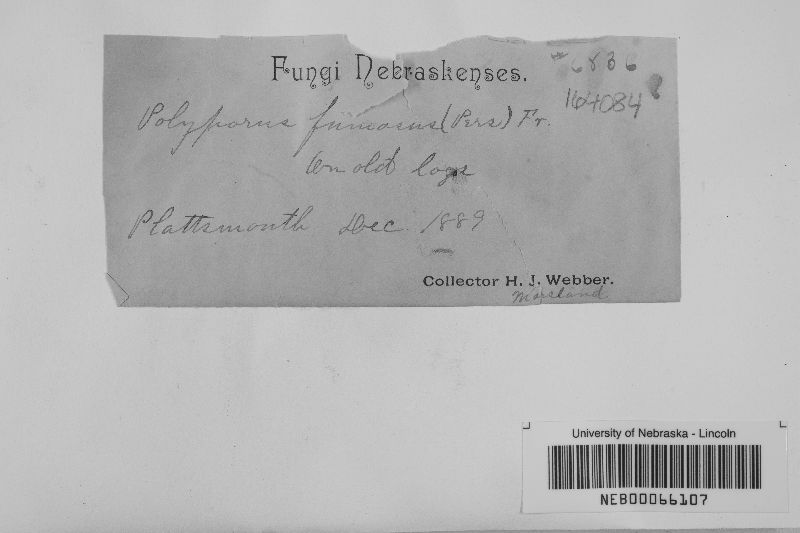 Fungi Nebraskenses.
6836
164084
Polyporus fumosus (Pers) Fr.
On old logs
Plattsmouth Dec. 1889
Collector H. J. Webber.
Marsland
University of Nebraska - Lincoln
NEB00066107